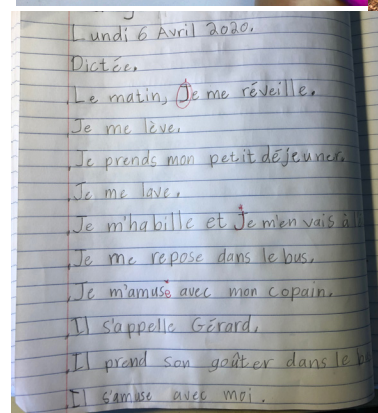 Lundi 6 Avril 2020.
Dictée.
Le matin, Je me réveille.
Je me lève.
Je prends mon petit déjeuner.
Je me lave.
Je m'habille et Je m'en vais à
Je me repose dans le bus.
Je m'amuse avec mon copain.
Il s'appelle Gérard.
Il prend son goûter dans le
Il s'amuse avec moi.